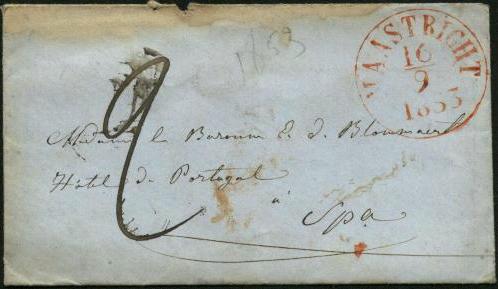 1853
MAASTRIGHT
16/9
1853
2
Madame la Baronne E. d. Blommaert
Hôtel de Portugal
à
Spa